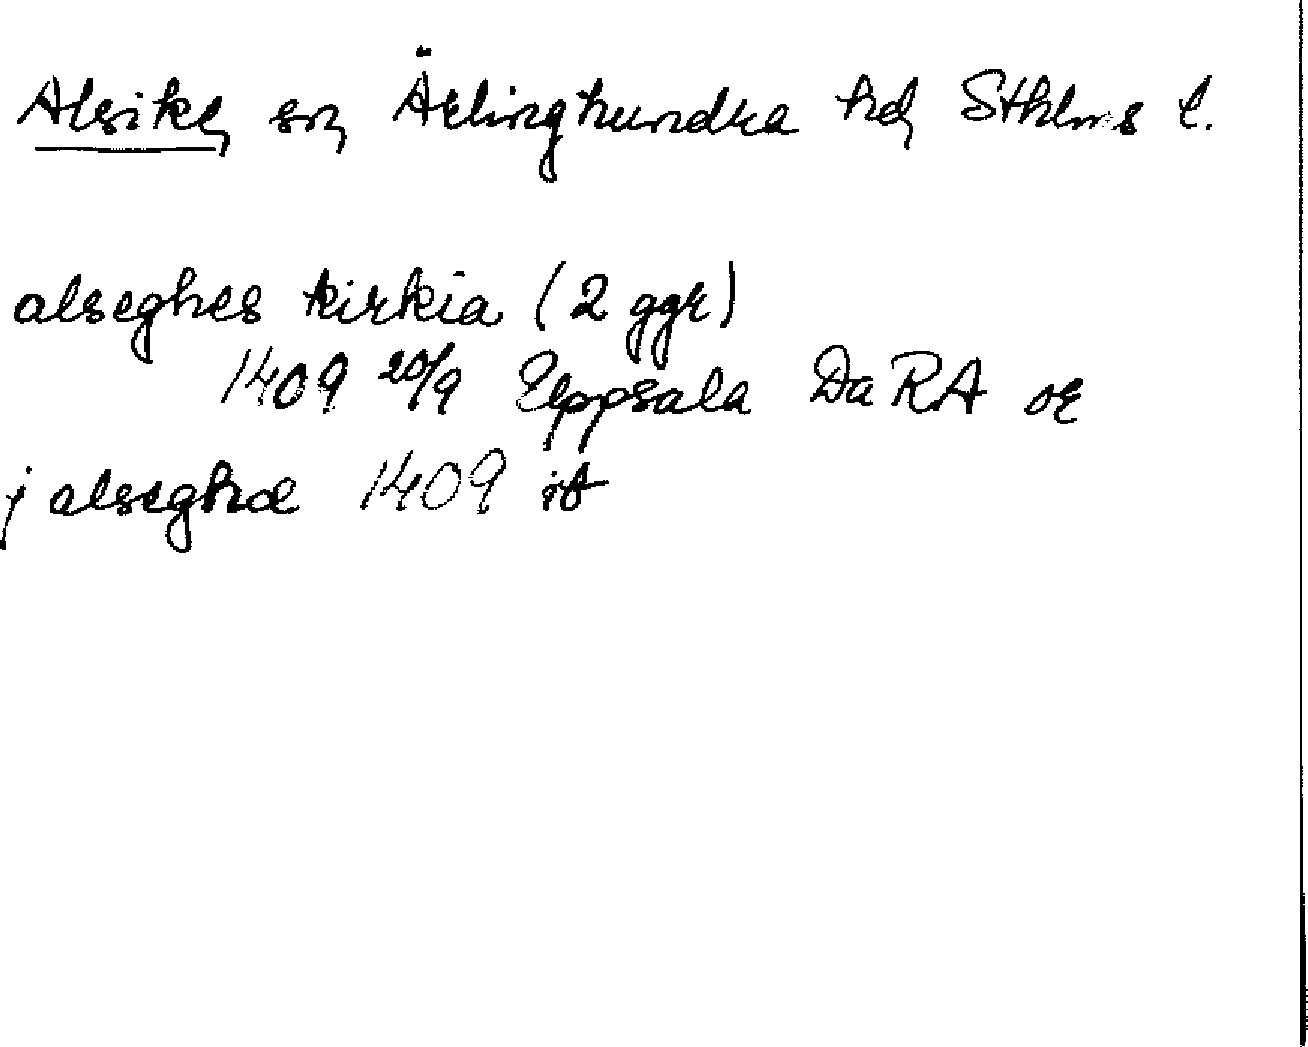 Alsike, sn, Ärlinghundra hd, Sthlms l.
alseghes kirkia (2 ggr)
1409 20/9 Uppsala DaRA or
j alseghæ 1409 ib